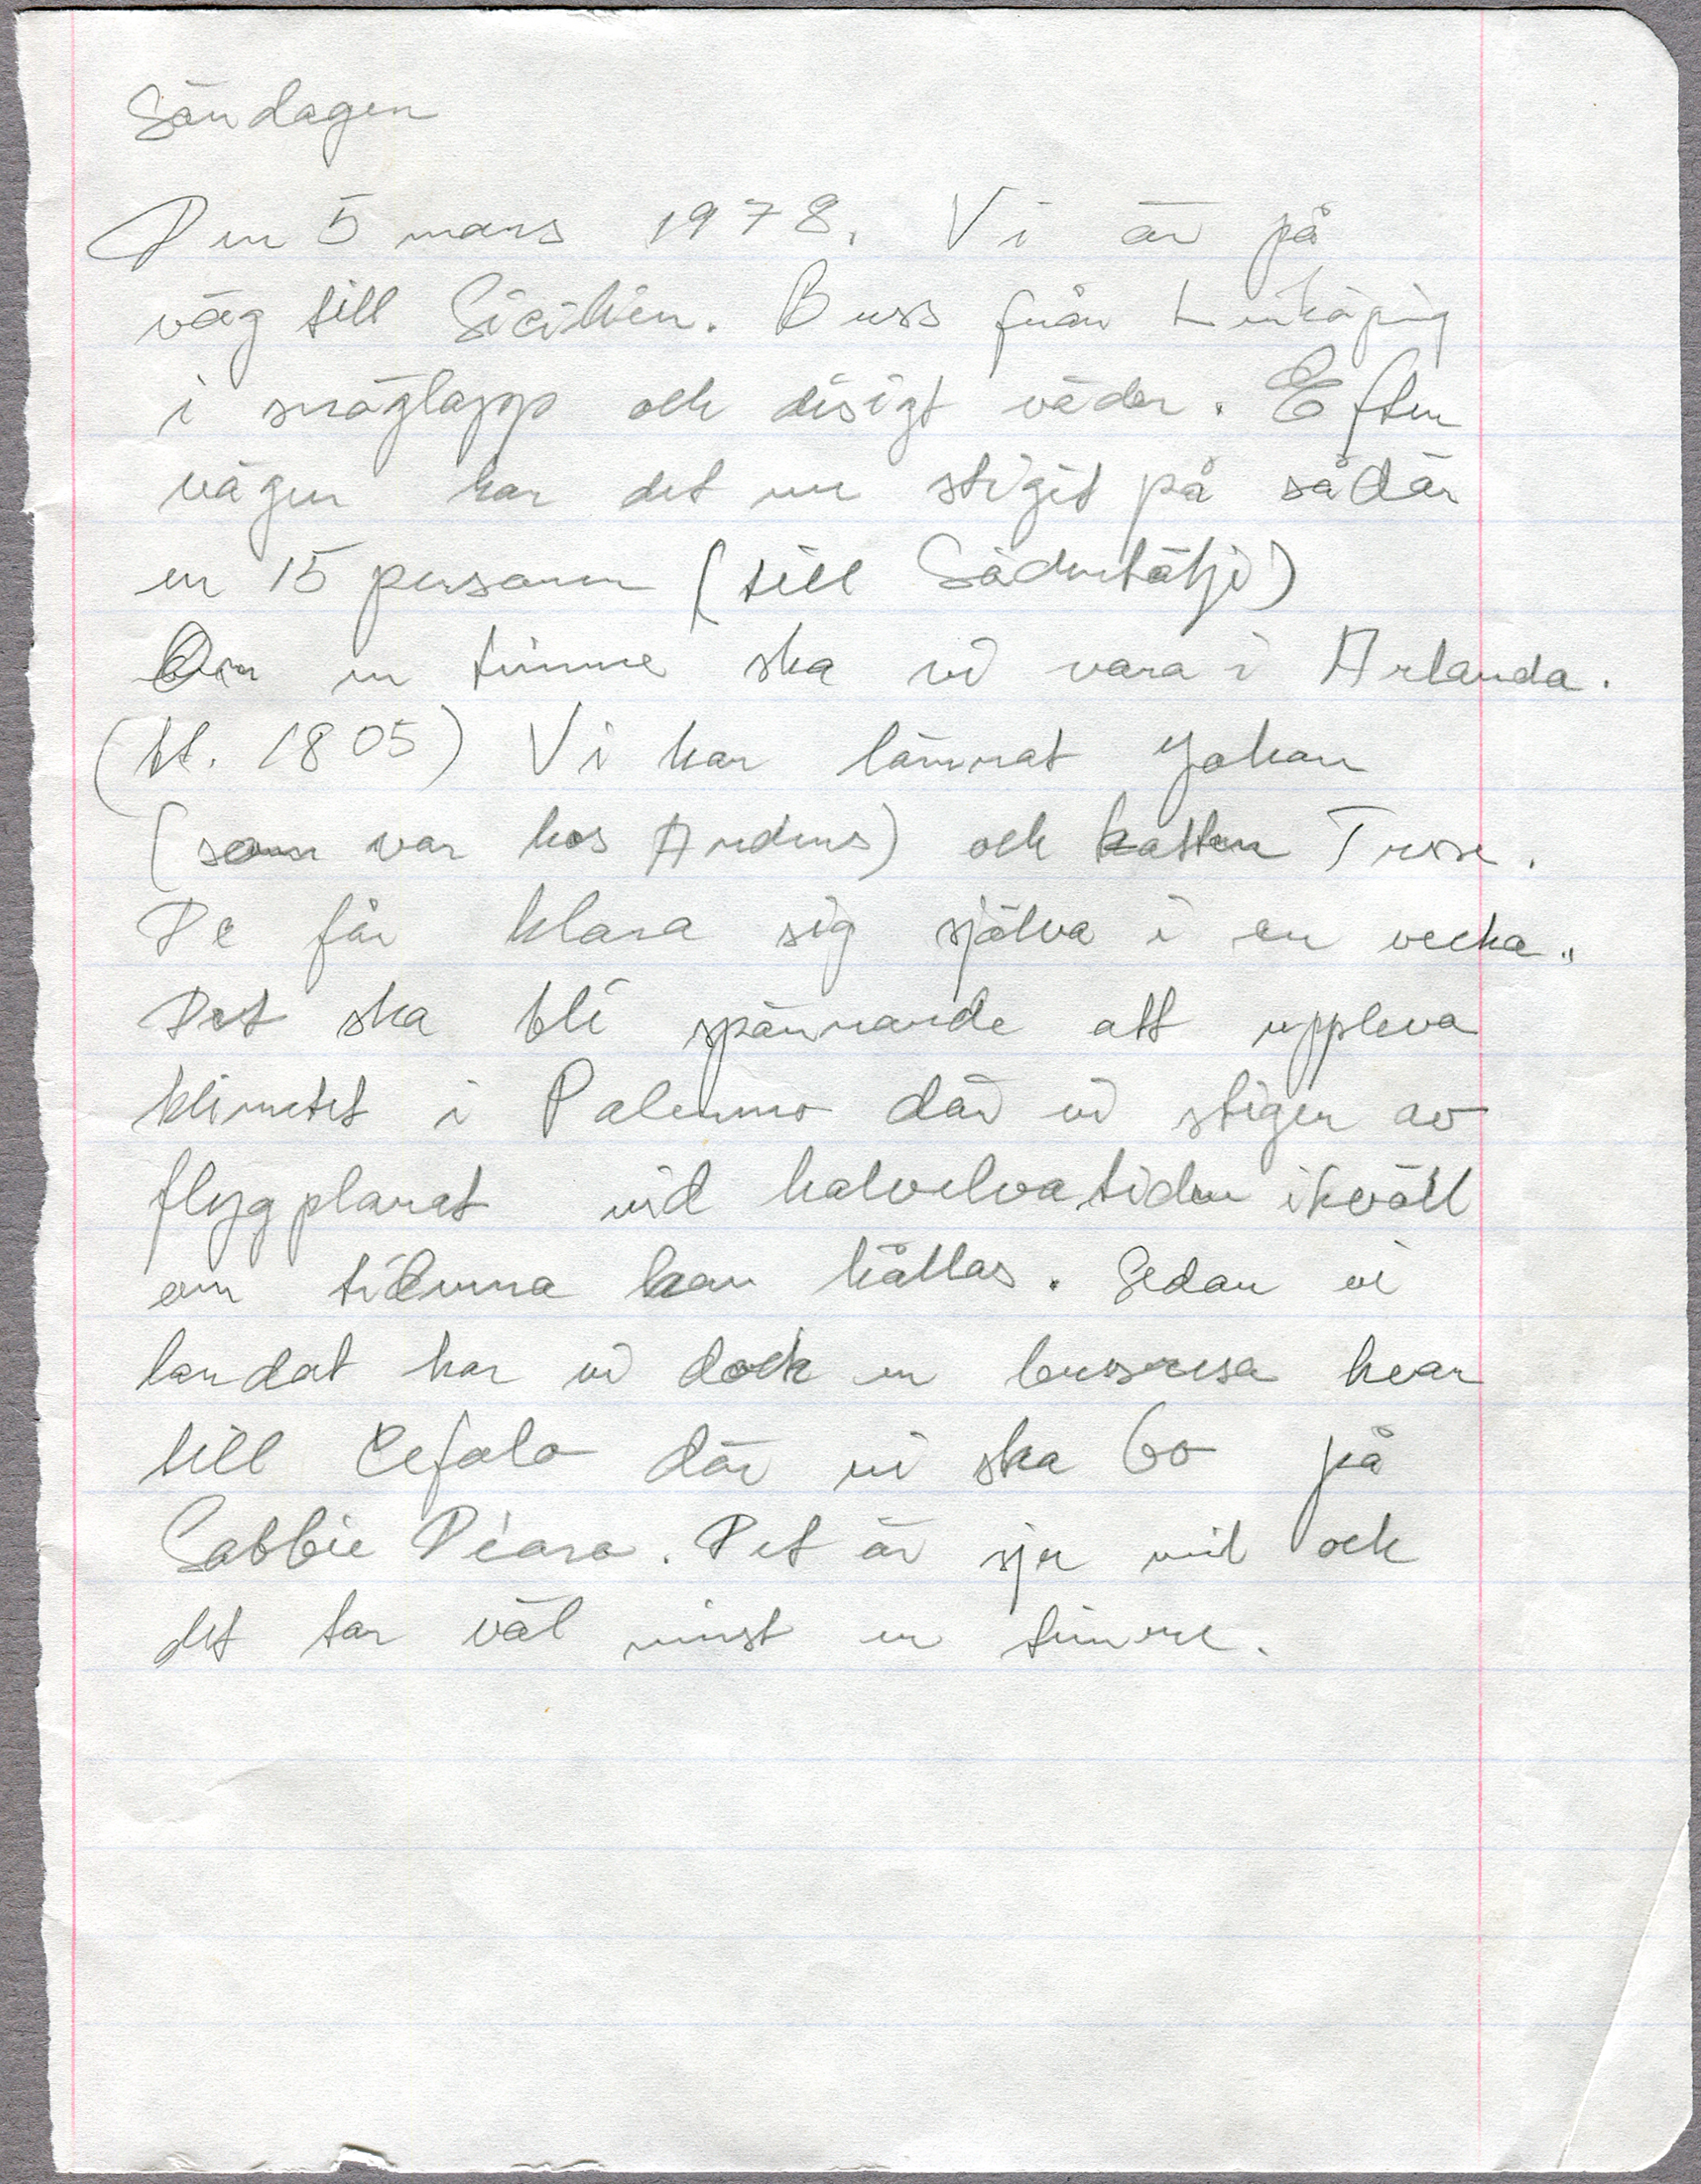 Söndagen
Den 5 mars 1978. Vi är på
väg till Sicilien. Buss från Linköping
i snöglopp och disigt väder. Efter
vägen har det nu stigit på sådär
en 15 personer (till Södertälje)
Om en timme ska vi vara i Arlanda.
(kl. 1805) Vi har lämnat Johan
(som var hos Anders) och katten
De får klara sig själva i en vecka..
Det ska bli spännande att uppleva
klimatet i Palermo där vi stiger av
flygplanet vid halvelvatiden ikväll
om tiderna kan hållas. Sedan vi
landat har vi dock en bussresa kvar
till Cefalo där vi ska bo på
Sabbie D'oro. Det är sju mil och
det tar väl minst en timme.